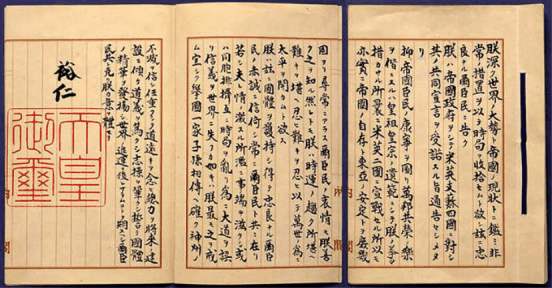 朕深ク世界ノ大勢ト帝國ノ現狀トニ鑑ミ非
常ノ措置ヲ以テ時局ヲ收拾セムト欲シ茲ニ忠
良ナル爾臣民ニ告ク
朕ハ帝國政府ヲシテ米英支蘇四國ニ對シ
其ノ共同宣言ヲ受諾スル旨通告セシメタ
リ
抑〻帝國臣民ノ康寧ヲ圖リ萬邦共榮ノ樂
ヲ偕ニスルハ皇祖皇宗ノ遺範ニシテ朕ノ拳〻
措カサル所曩ニ米英二國ニ宣戰セル所以モ
亦實ニ帝國ノ自存ト東亞ノ安定トヲ庶幾
固ヨリ尋常ニアラス爾臣民ノ衷情モ朕善
ク之ヲ知ル然レトモ朕ハ時運ノ趨ク所堪ヘ
難キヲ堪ヘ忍ヒ難キヲ忍ヒ以テ萬世ノ為ニ
太平ヲ開カムト欲ス
朕ハ茲ニ國體ヲ護持シ得テ忠良ナル爾臣
民ノ赤誠ニ信倚シ常ニ爾臣民ト共ニ在リ
若シ夫レ情ノ激スル所濫ニ事端ヲ滋クシ或
ハ同胞排擠互ニ時局ヲ亂リ為ニ大道ヲ誤
リ信義ヲ世界ニ失フカ如キハ朕最モ之ヲ戒
ム宜シク擧國一家子孫相傳ヘ確ク神州ノ
不滅ヲ信シ任重クシテ道遠キヲ念ヒ總力ヲ將來ノ建
設ニ傾ケ道義ヲ篤クシ志操ヲ鞏クシ誓テ國體
ノ精華ヲ發揚シ世界ノ進運ニ後レサラムコトヲ期スヘシ爾臣
民其レ克ク朕カ意ヲ體セヨ
裕仁
天皇
御璽
内
閣
内
閣